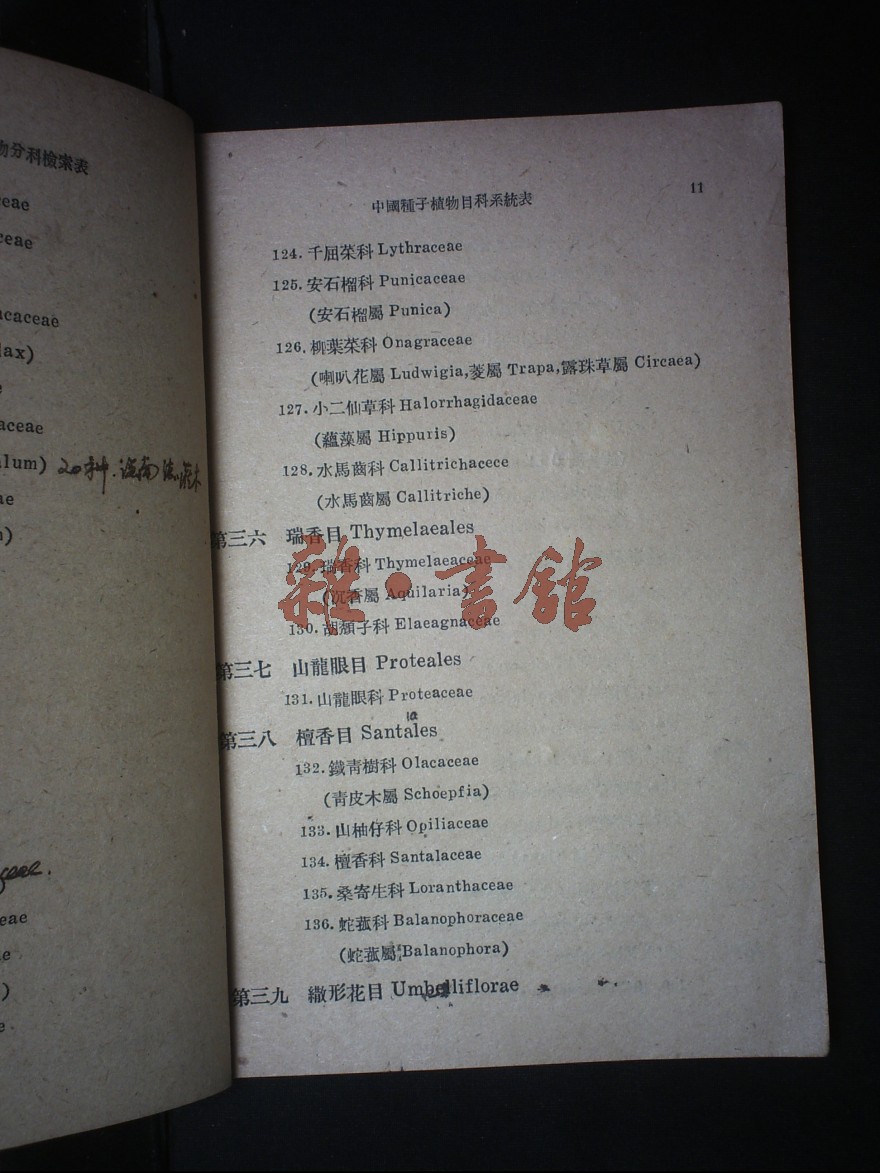 物分科檢索表
eae
ceae
acaceae
lax)
e
aceae
lum) 20种
ae
)
ceae.
eae
e
)
e
中國種子植物目科系統表
11
124.千屈菜科 Lythraceae
125.安石榴科 Punicaceae
(安石榴屬 Punica)
126.柳葉菜科 Onagraceae
(喇叭花屬 Ludwigia,菱屬 Trapa,露珠草屬 Circaea)
127.小二仙草科 Halorrhagidaceae
(蘊藻屬 Hippuris)
128.水馬齒科 Callitrichacece
(水馬齒屬 Callitriche)
第三六 瑞香目 Thymelaeales
129.瑞香科 Thymelaeaceae
(沉香屬 Aquilaria)
130.胡頹子科 Elaeagnaceae
第三七 山龍眼目 Proteales
131.山龍眼科 Proteaceae
第三八 檀香目 Santales
132.鐵青樹科 Olacaceae
(青皮木屬 Schoepfia)
133.山柚仔科 Opiliaceae
134.檀香科 Santalaceae
135.桑寄生科 Loranthaceae
136.蛇菰科 Balanophoraceae
(蛇菰屬 Balanophora)
第三九 繖形花目 Umbelliflorae
雜·書館